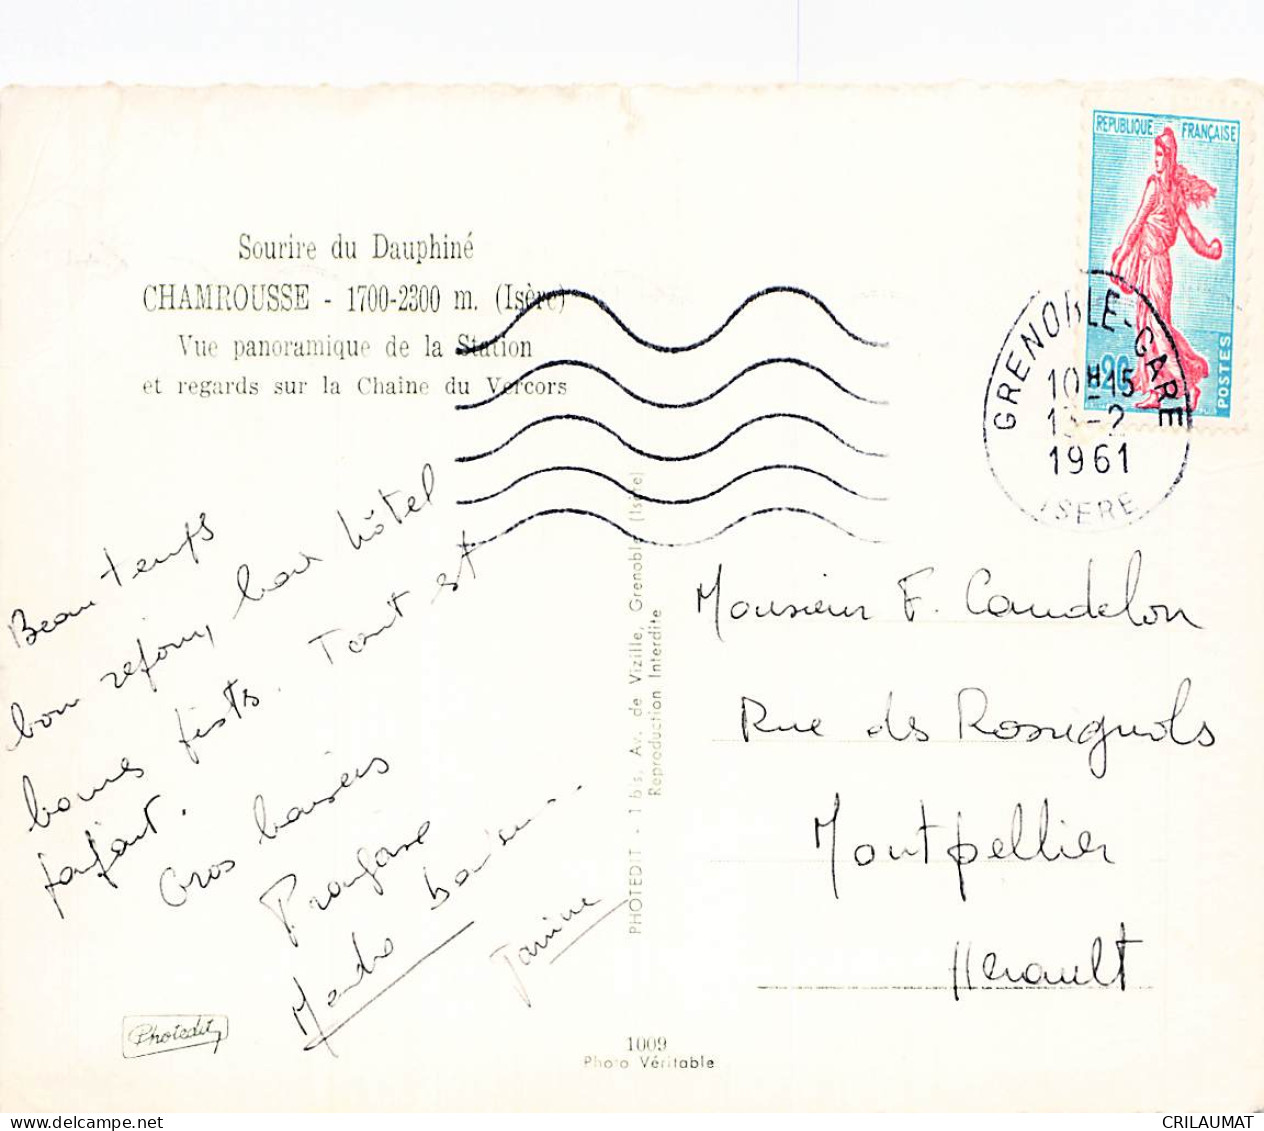 REPUBLIQUE FRANÇAISE
POSTES
GRENOBLE-GARE
10H15
13-2
1961
ISERE
Sourire du Dauphiné
CHAMROUSSE - 1700-2300 m. (Isère)
Vue panoramique de la Station
et regards sur la Chaîne du Vercors
Beau temps
bon séjour, bon hôtel
bonnes pistes. Tout est
parfait.
Gros baisers
Françoise
Janine
Monsieur F. Caudelon
Rue des Rossignols
Montpellier
Herault
PHOTEDIT - 1 bis, Av. de Vizille, Grenoble (Isère)
Reproduction Interdite
Photedit
1009
Photo Véritable
delcampe.net
CRILAUMAT